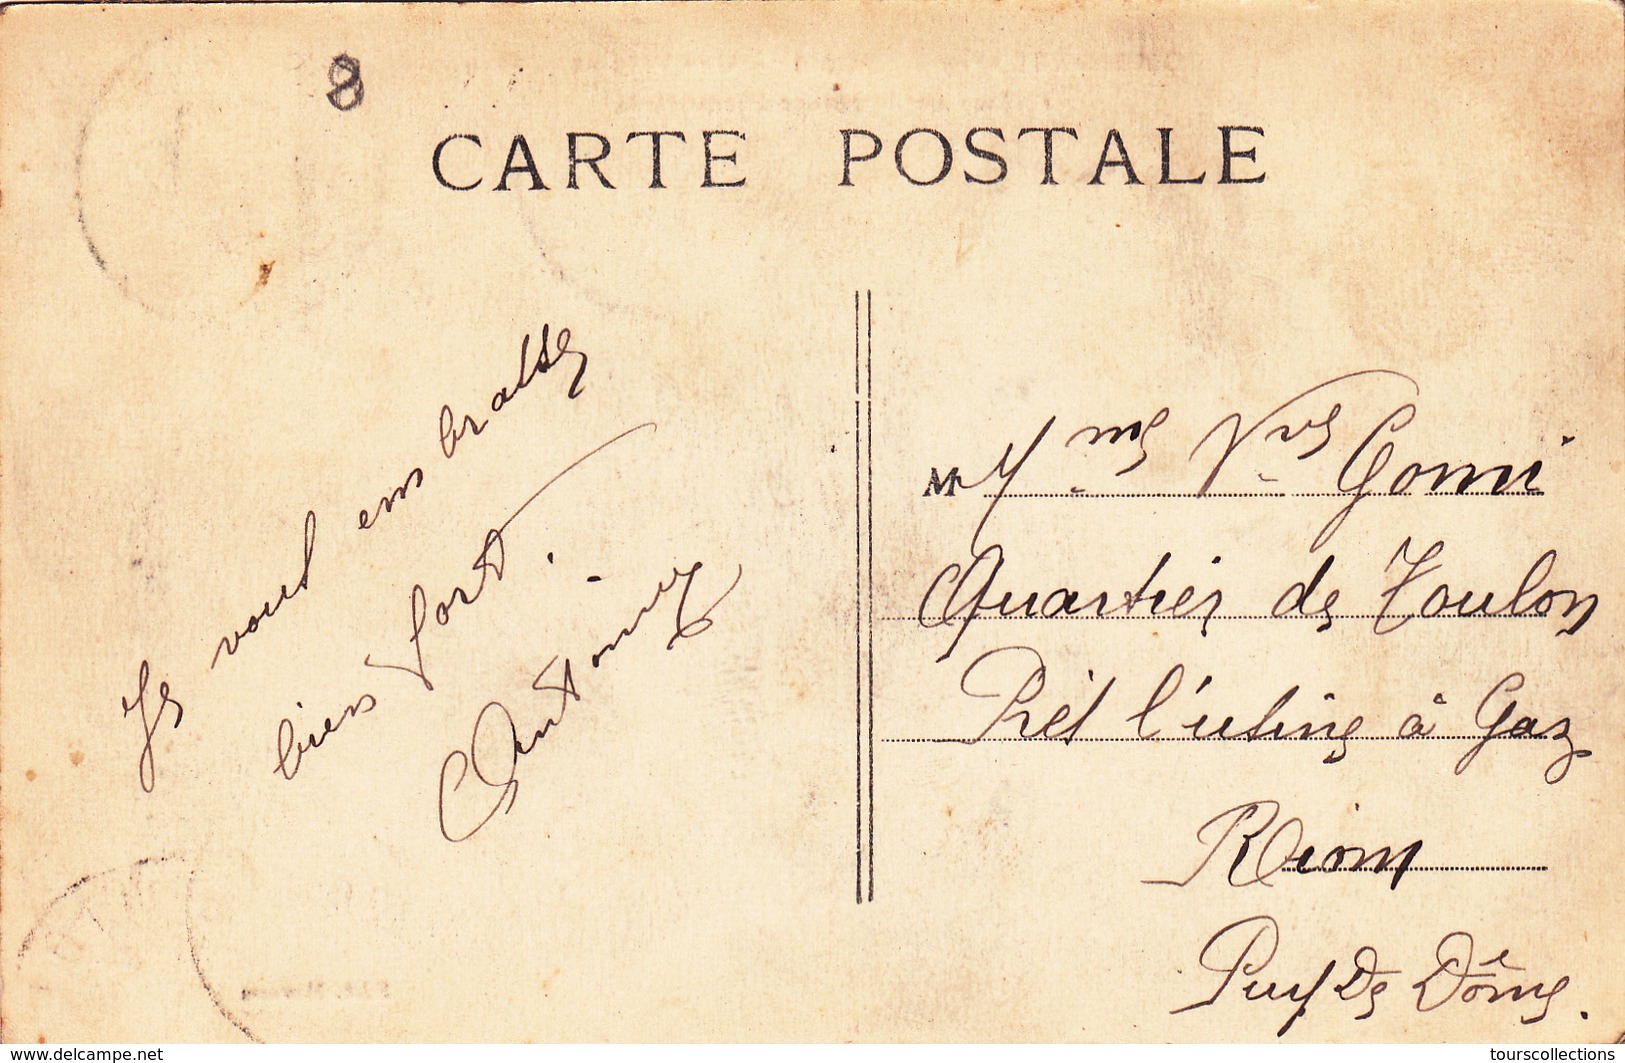 8
CARTE POSTALE
Je vous embrasse
bien fort.
Antony
M Mme Vve Gomi
Quartier de Toulon
Près l'usine à Gaz
Riom
Puy De Dôme.
www.delcampe.net
tourscollections